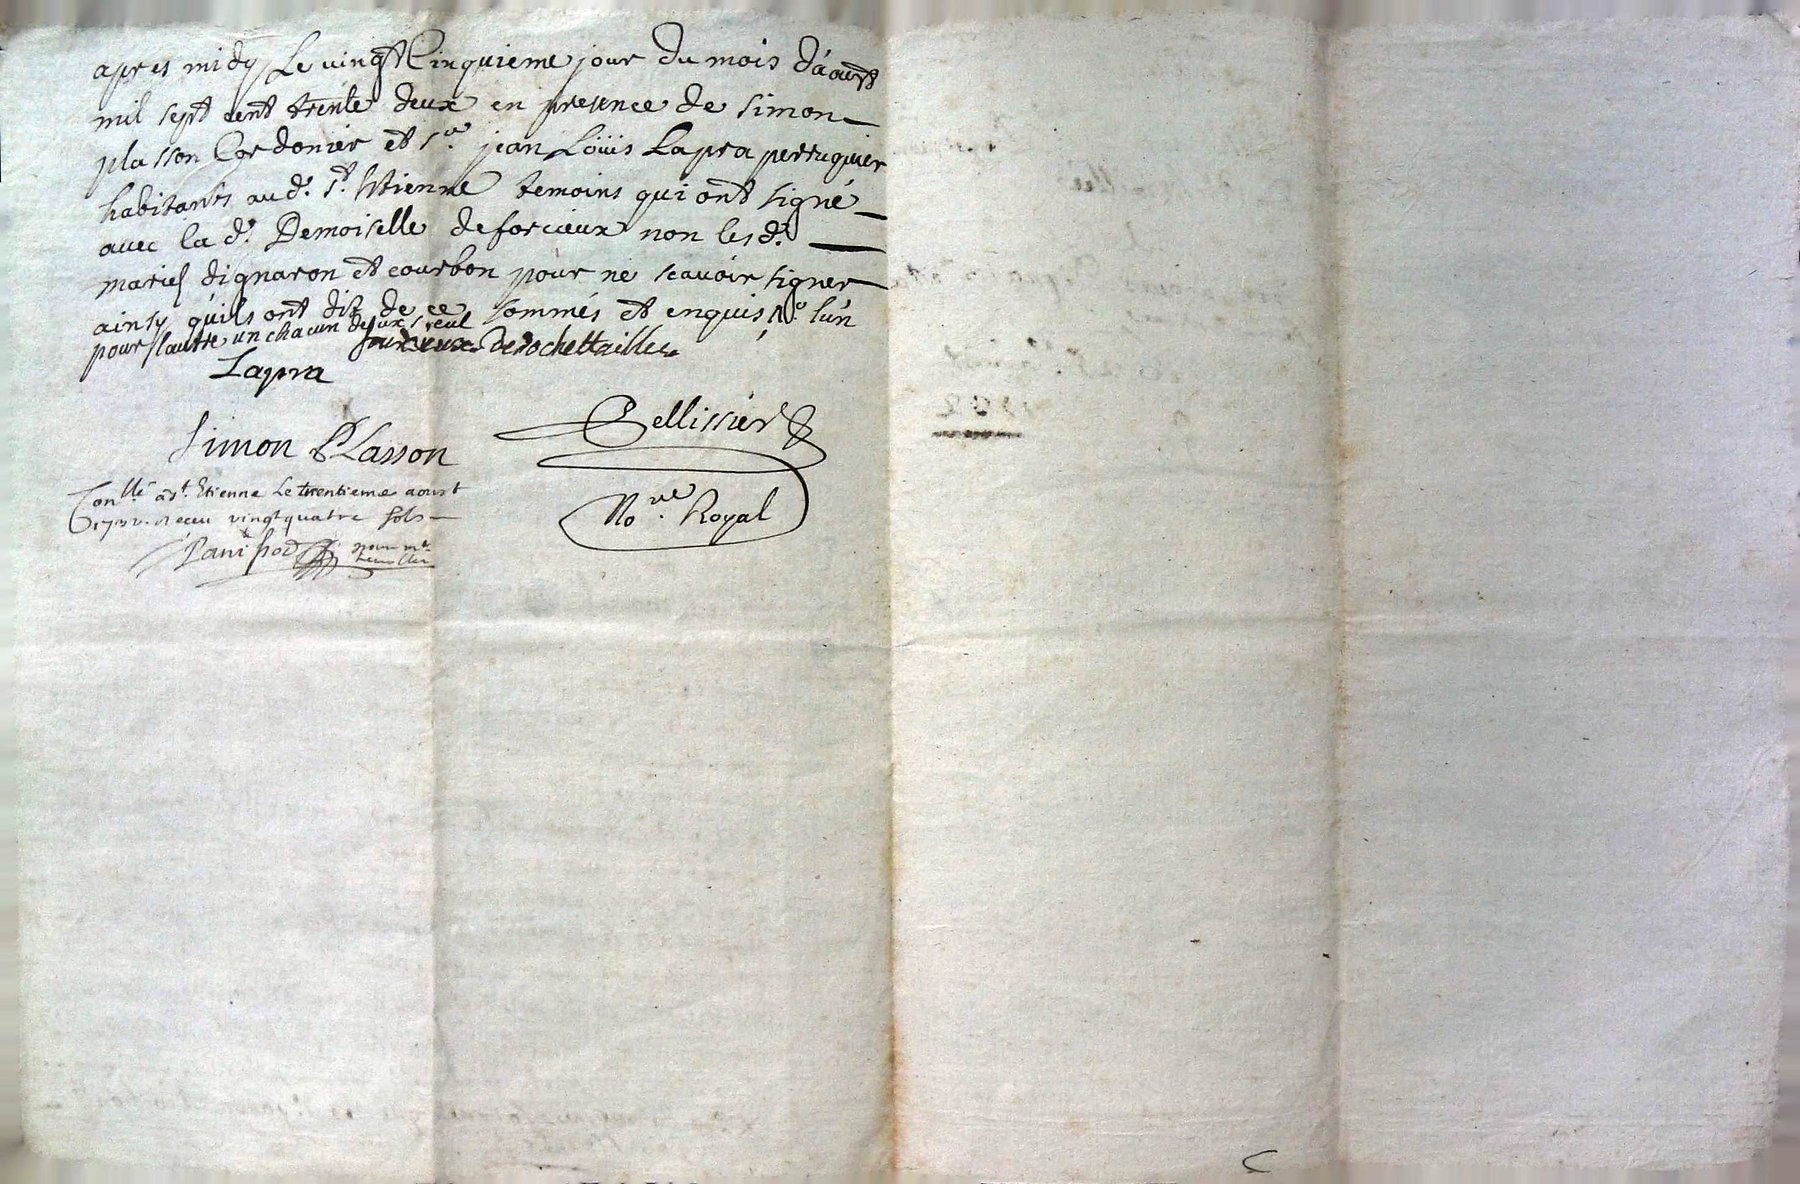 apres midy Le vingt Cinquieme jour du mois d'aoust
mil sept cent trente deux en presence de simon
plasson Cordonier et sr. jean Loüis Lapra perruquier
habitants aud. st. Etienne temoins qui ont signé
avec la d. Demoiselle deforcieux non lesd.
mariés dignaron et courbon pour ne scavoir signer
ainsy quils ont dit de ce sommés et enquis l'un
pour l'autre un chacun deux seul
De rochettaillee
Lapra
Simon PLasson
Pellissier
No.re Royal
Conllé a st. Etienne Le trentieme aoust
1732. receu vingt quatre sols